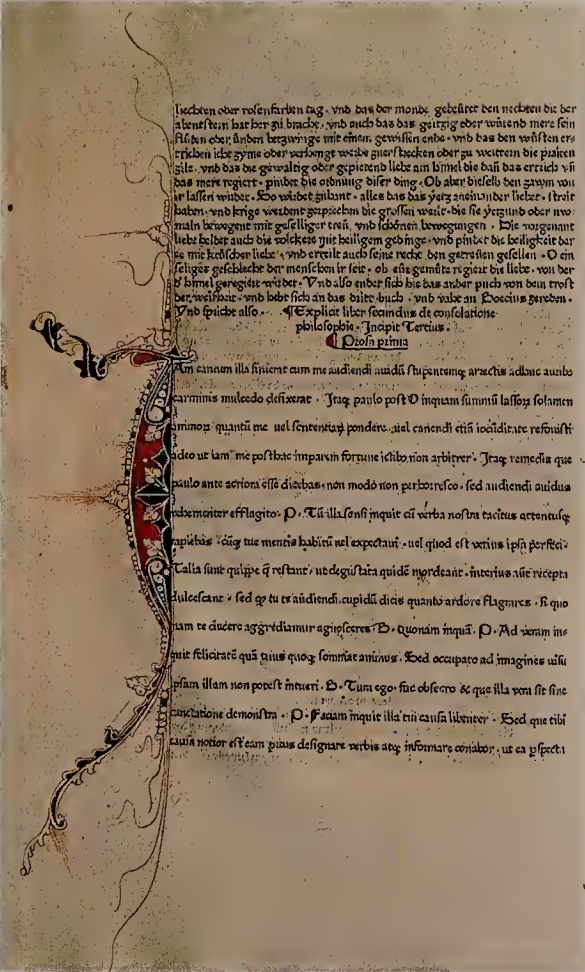 liechten oder rosenfarben tag · vnd das der monde gebeütet den nechten die der
abentstern hat her zů bracht · vnd auch das das geitzig oder wütend mere sein
flůten oder ünden betzwinge mit einem gewissen ende · vnd das den wüsten er
trichen icht gyme oder verhengt weite zuerstrecken oder zu weittern die
gilt · vnd das die gewaltig oder gepietend liebe am himel die dañ das ertrich vñ
das mere regiert · pindet die ordnung diser ding · Ob aber dieselb den zawm von
ir lassen würdet · So würdet zůhant · alles das das yetz aneinander liebet · streit
haben · vnd krige werdent zerprechen die grossen welt · die sie yetzund oder nwo
maln bewegent mit geselliger treü, vnd schönen bewegungen · Die vorgenant
liebe heldet auch die völckere mit heiligem gedinge · vnd pindet die heiligkeit der
ee mit keüscher liebe · vnd erteilt auch seine recht den getreüen gesellen · O ein
seliges geschlecht der menschen ir seit · ob eür gemüte regiert die liebe · von der
d' himel geregiert würdet · Vnd also endet sich hie das ander puch von dem trost
der weißheit · vnd hebt sich an das dritt buch · vnd vahet an Boecius zereden ·
Vnd spricht also · ¶ Explicit liber secundus de consolatione
philosophie · Incipit Tertius ·
¶ Prosa prima
Iam cantum illa finierat cum me audiendi auidũ stupentemq; arrectis adhuc auribȝ
carminis mulcedo defixerat · Itaq; paulo post O inquam summũ lassoȝ solamen
animoȝ quantũ me uel sententiaȝ pondere · uel canendi etiã iocũditate refouisti
adeo ut iam me posthac imparem fortune ictibȝ non arbitrer · Itaq; remedia que
paulo ante acriora esse dicebas · non modo non perhorresco · sed audiendi auidus
vehementer efflagito · P · Tũ illa sensi inquit cũ verba nostra tacitus attentusq;
rapiebas · eũq; tue mentis habitũ uel expectaui · uel quod est verius ipsa perfeci ·
Talia sunt quippe q̄ restant · ut degustata quidẽ mordeant · interius aũt recepta
dulcescant · sed qȝ tu te audiendi cupidũ dicis quanto ardore flagrares · si quo
nam te ducere aggrediamur agnosceres · B · Quonam inquã · P · Ad veram in
quit felicitatẽ quã tuus quoq; somniat animus · Sed occupato ad imagines uisu
ipsam illam non potest intueri · B · Tum ego · fac obsecro & que illa vera sit sine
cunctatione demonstra · P · Faciam inquit illa tui causa libenter · Sed que tibi
causa notior est eam prius designare verbis atq; informare conabor · ut ea ꝑspecta